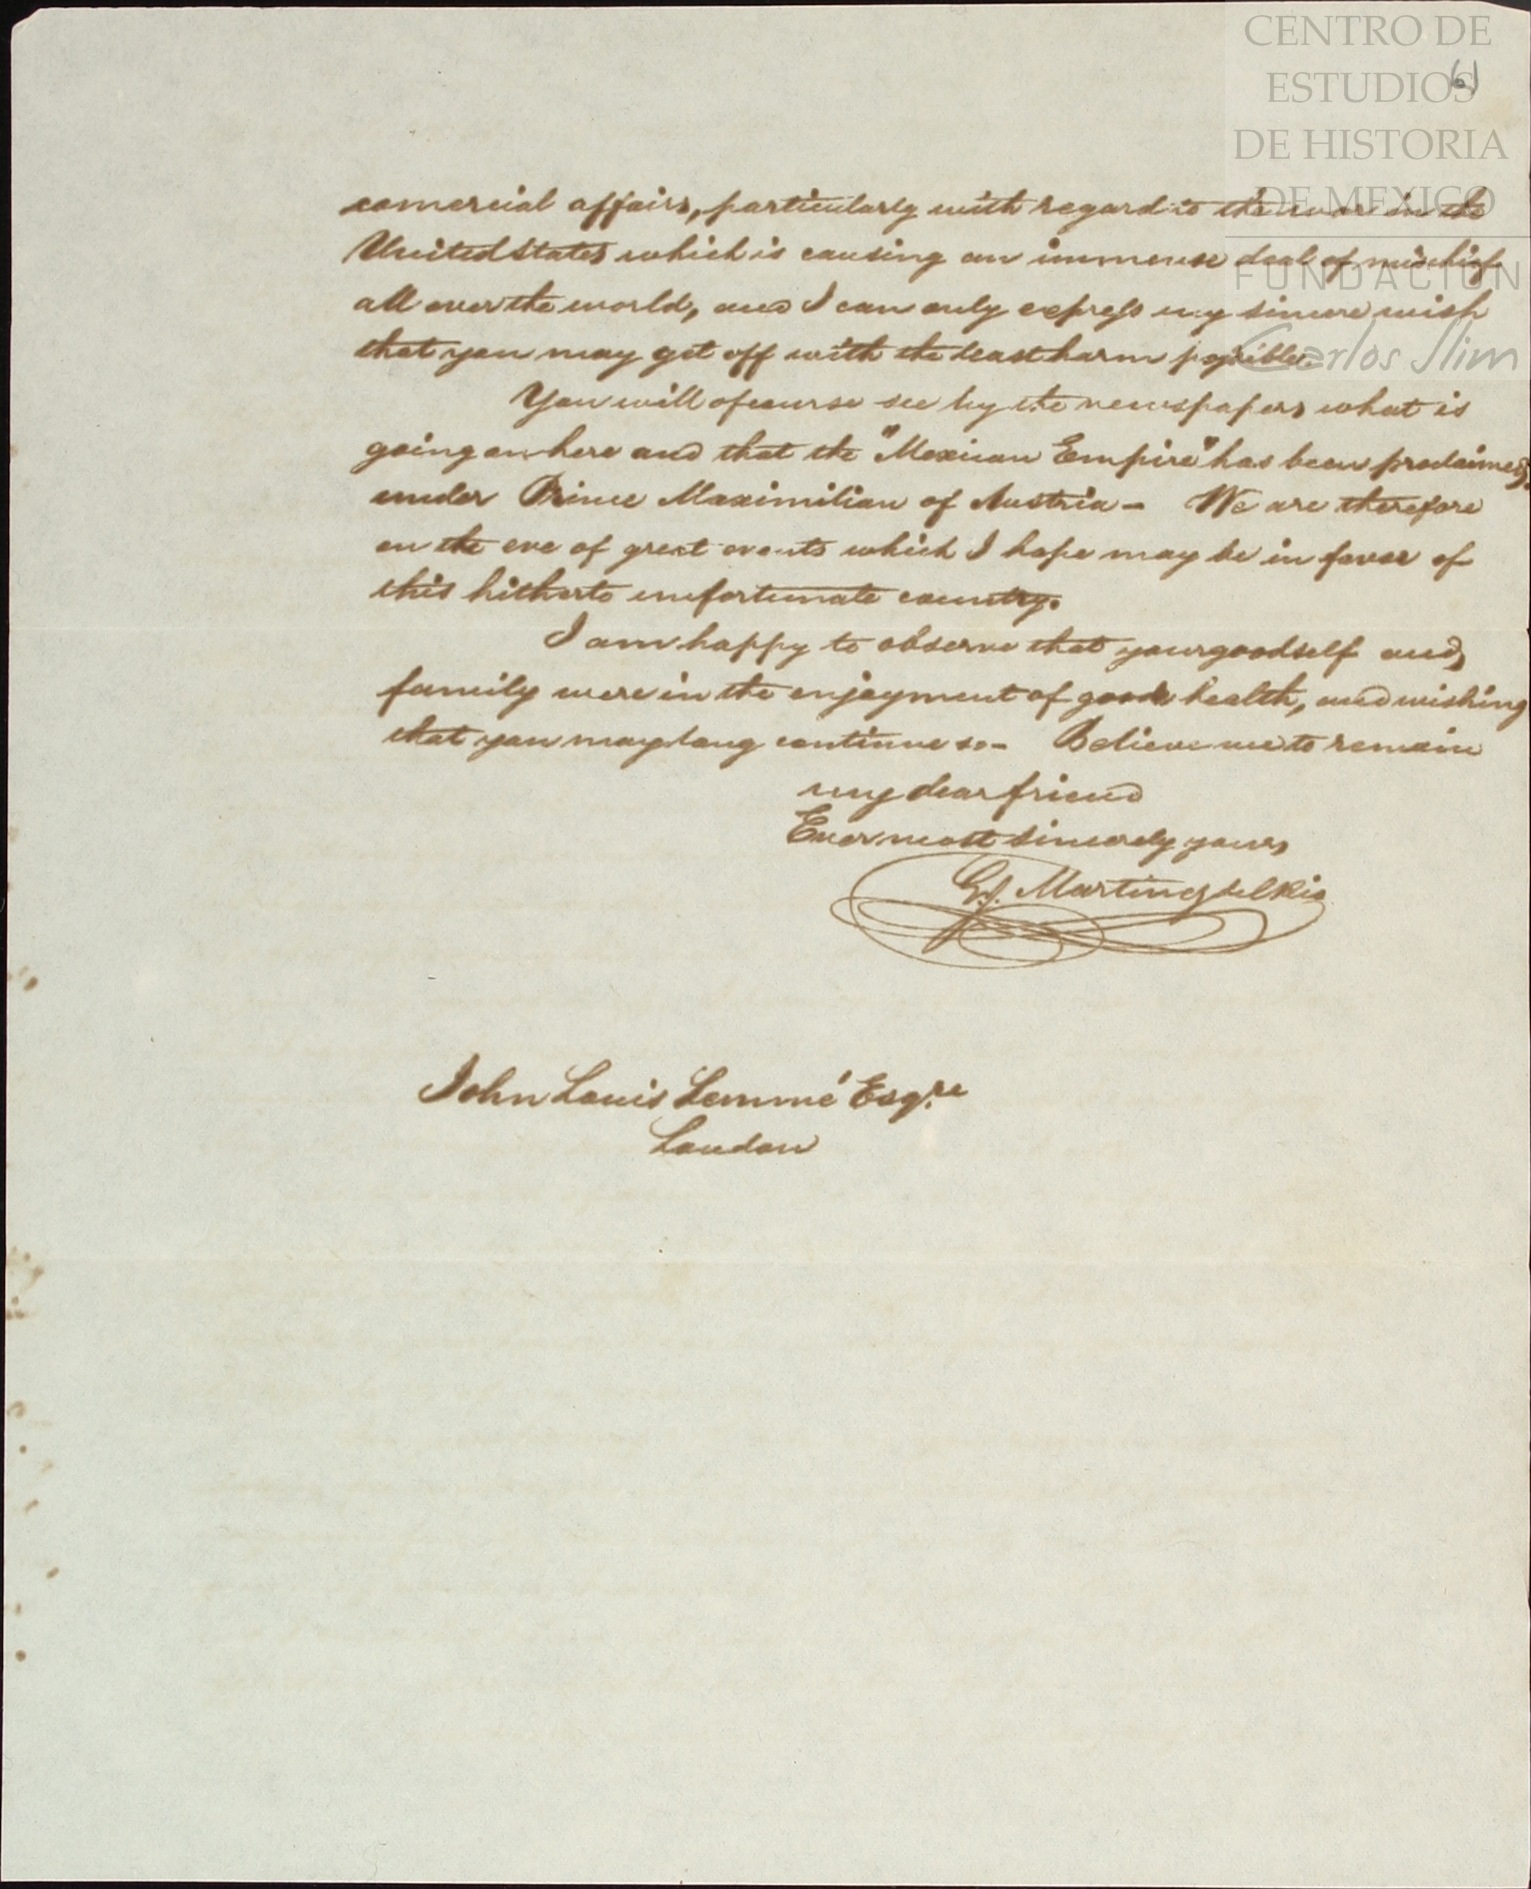 CENTRO DE
ESTUDIOS
DE HISTORIA
DE MEXICO
FUNDACIÓN
Carlos Slim
comercial affairs, particularly with regard to the war in the
United States which is causing an immense deal of mischief
all over the world, and I can only express my sincere wish
that you may get off with the least harm possible.
You will of course see by the newspapers what is
going on here and that the "Mexican Empire" has been proclaimed
under Prince Maximilian of Austria - We are therefore
on the eve of great events which I hope may be in favor of
this hitherto unfortunate country.
I am happy to observe that your goodself and
family were in the enjoyment of good health, and wishing
that you may long continue so - Believe me to remain
my dear friend
Ever most sincerely yours,
Martinez del Rio
John Louis Lemmé Esq.re
London